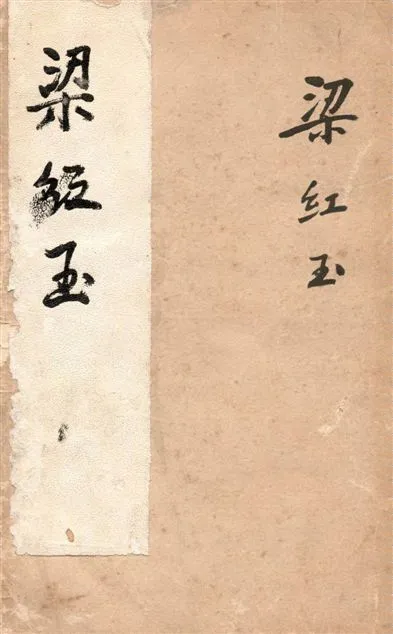 梁红玉
梁红玉